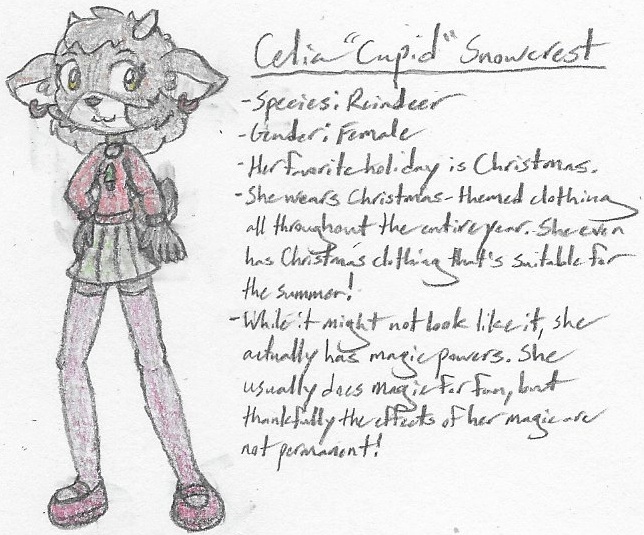 Celia "Cupid" Snowcrest
- Species: Reindeer
- Gender: Female
- Her favorite holiday is Christmas.
- She wears Christmas-themed clothing
all throughout the entire year. She even
has Christmas clothing that's suitable for
the summer!
- While it might not look like it, she
actually has magic powers. She
usually does magic for fun, but
thankfully the effects of her magic are
not permanent!